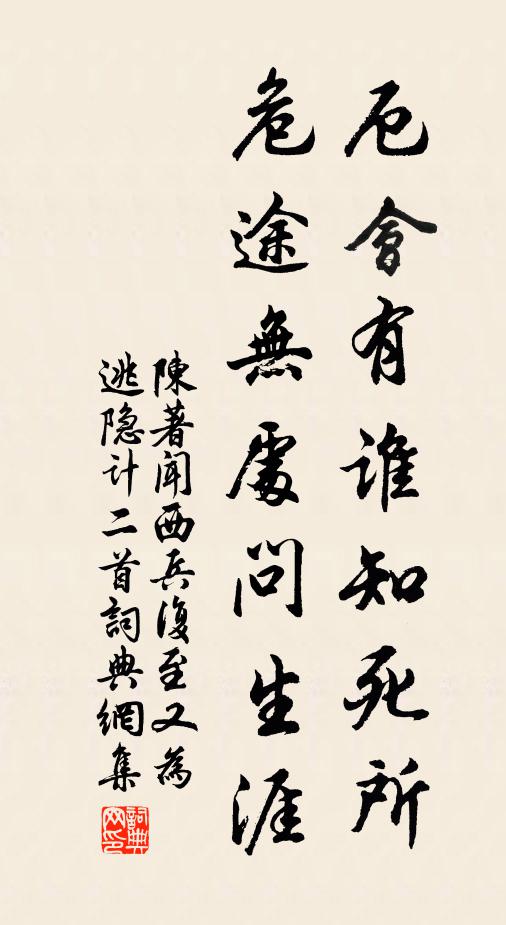 厄會有誰知死所
危途無處問生涯
陳著聞西兵復至又為
逃隐计二首詞典網集
詞典网印